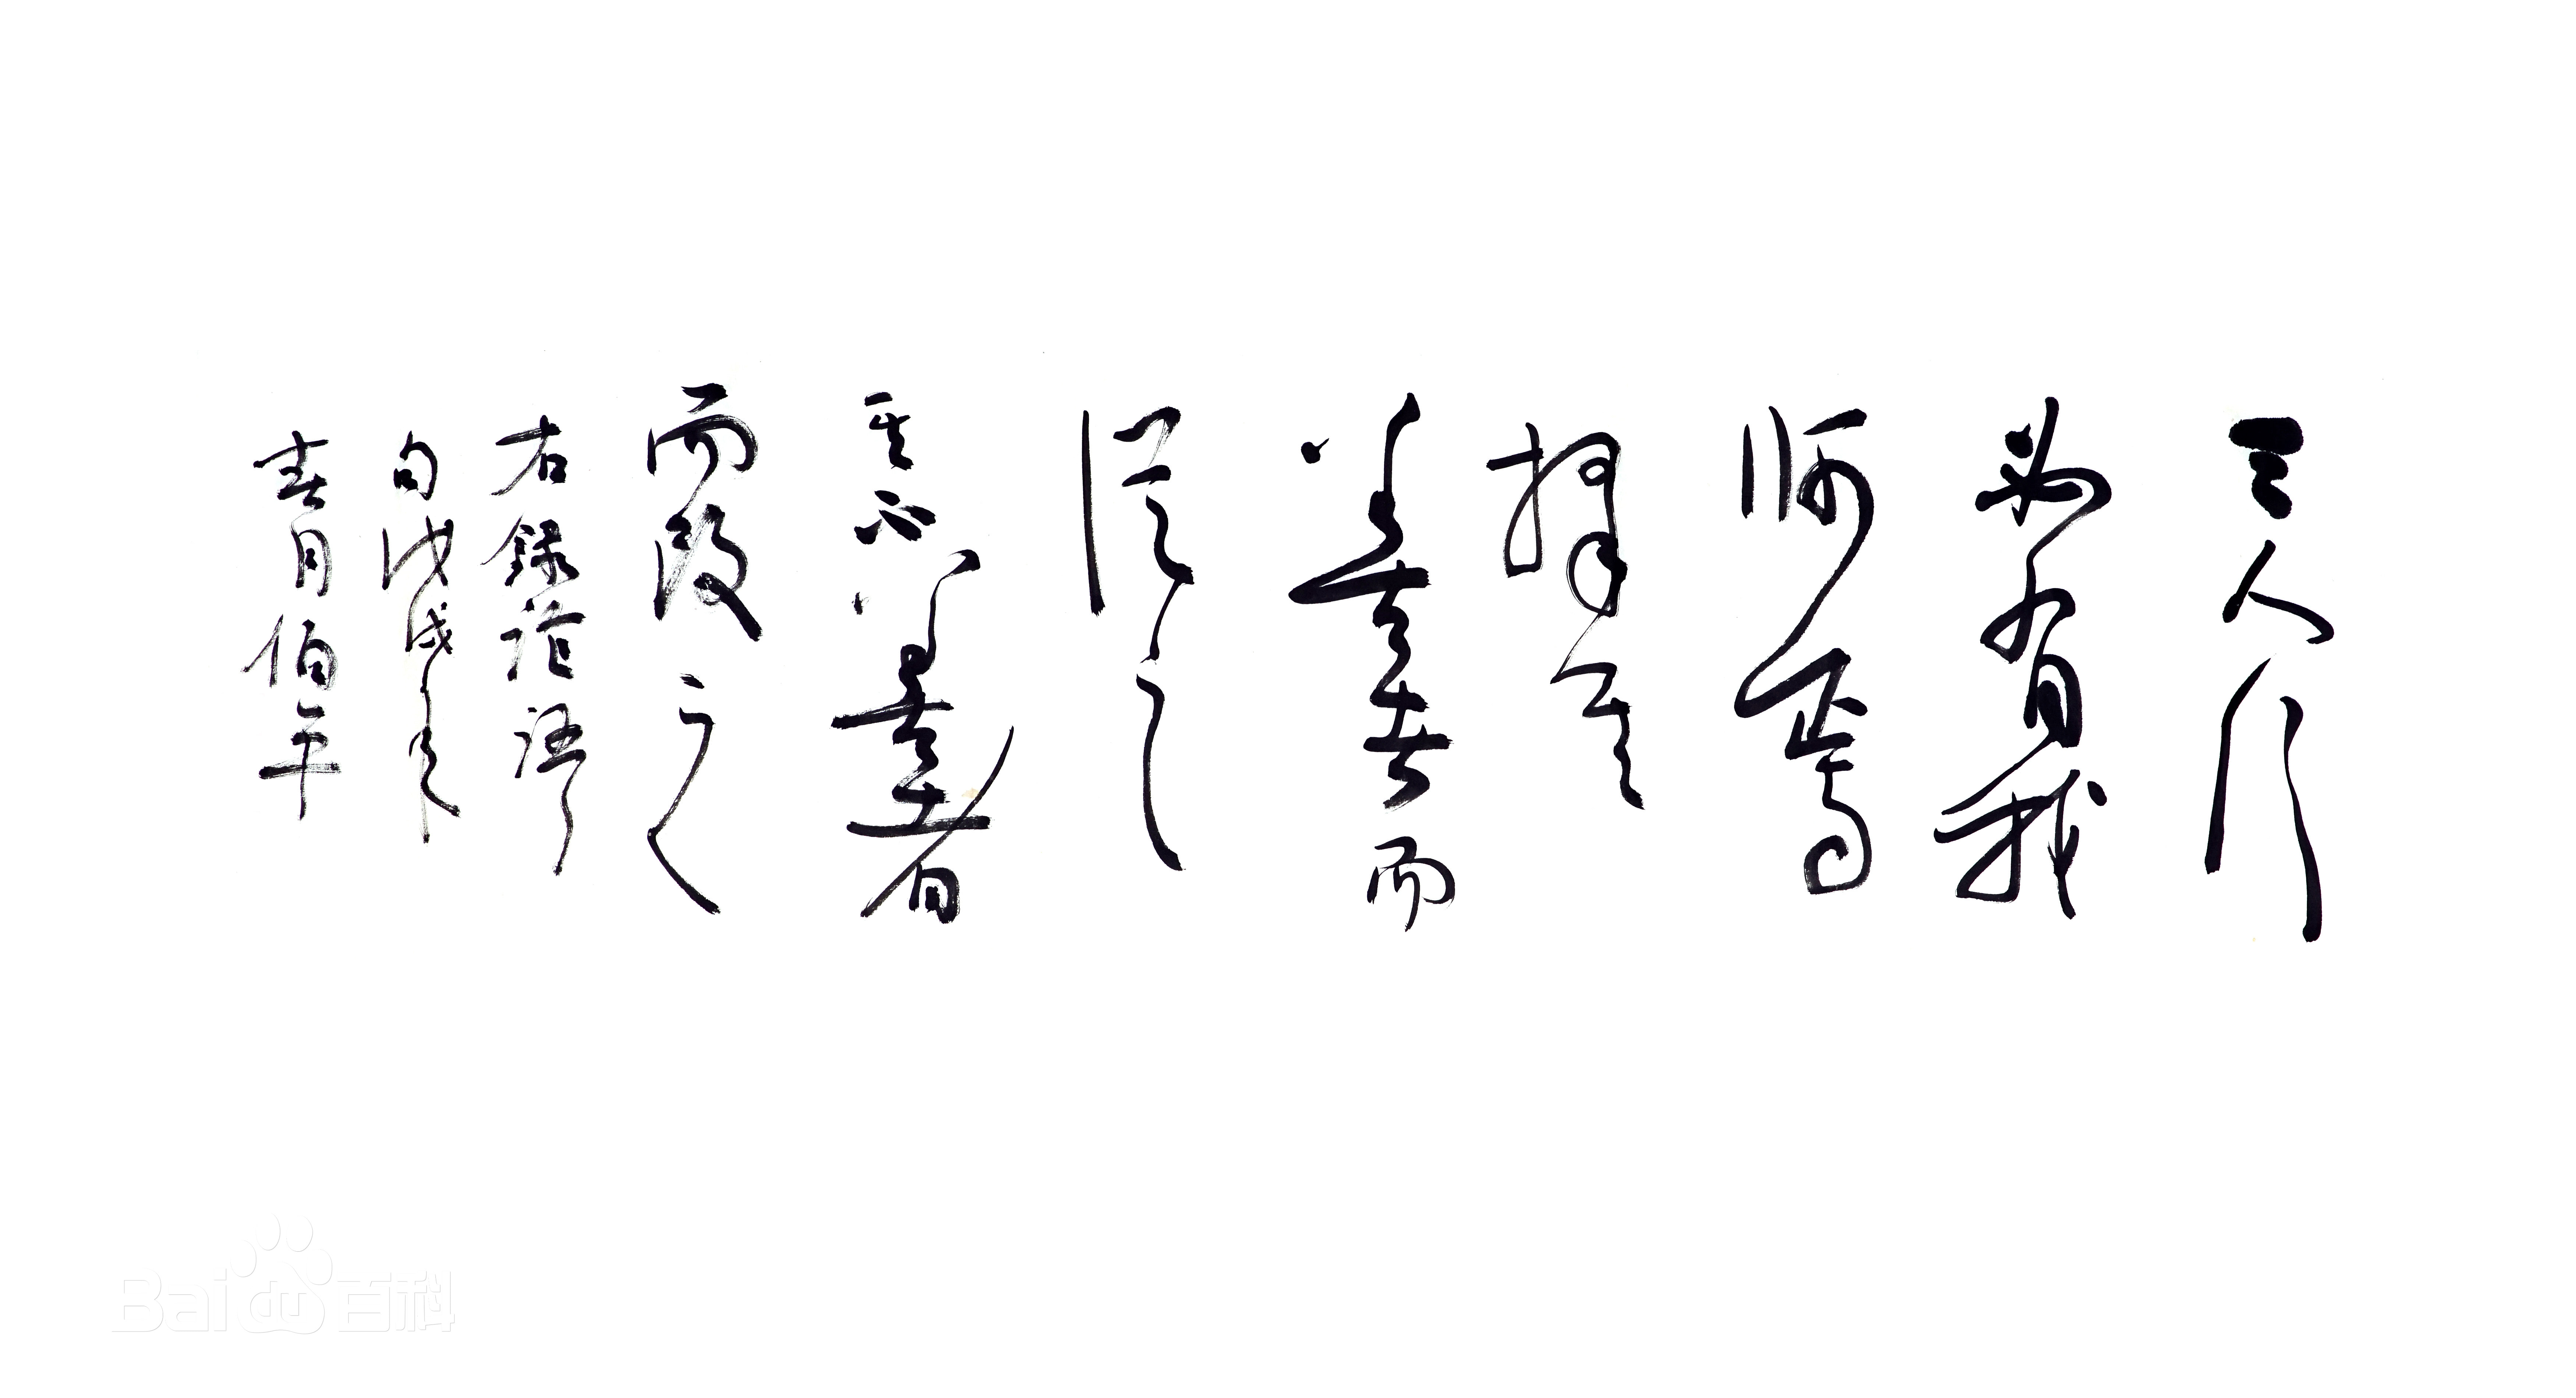 三人行
必有我
师焉
择其
善者而
從之
其不善者
而改之
右録論語
句戊戌年
春月伯平
Baidu百科